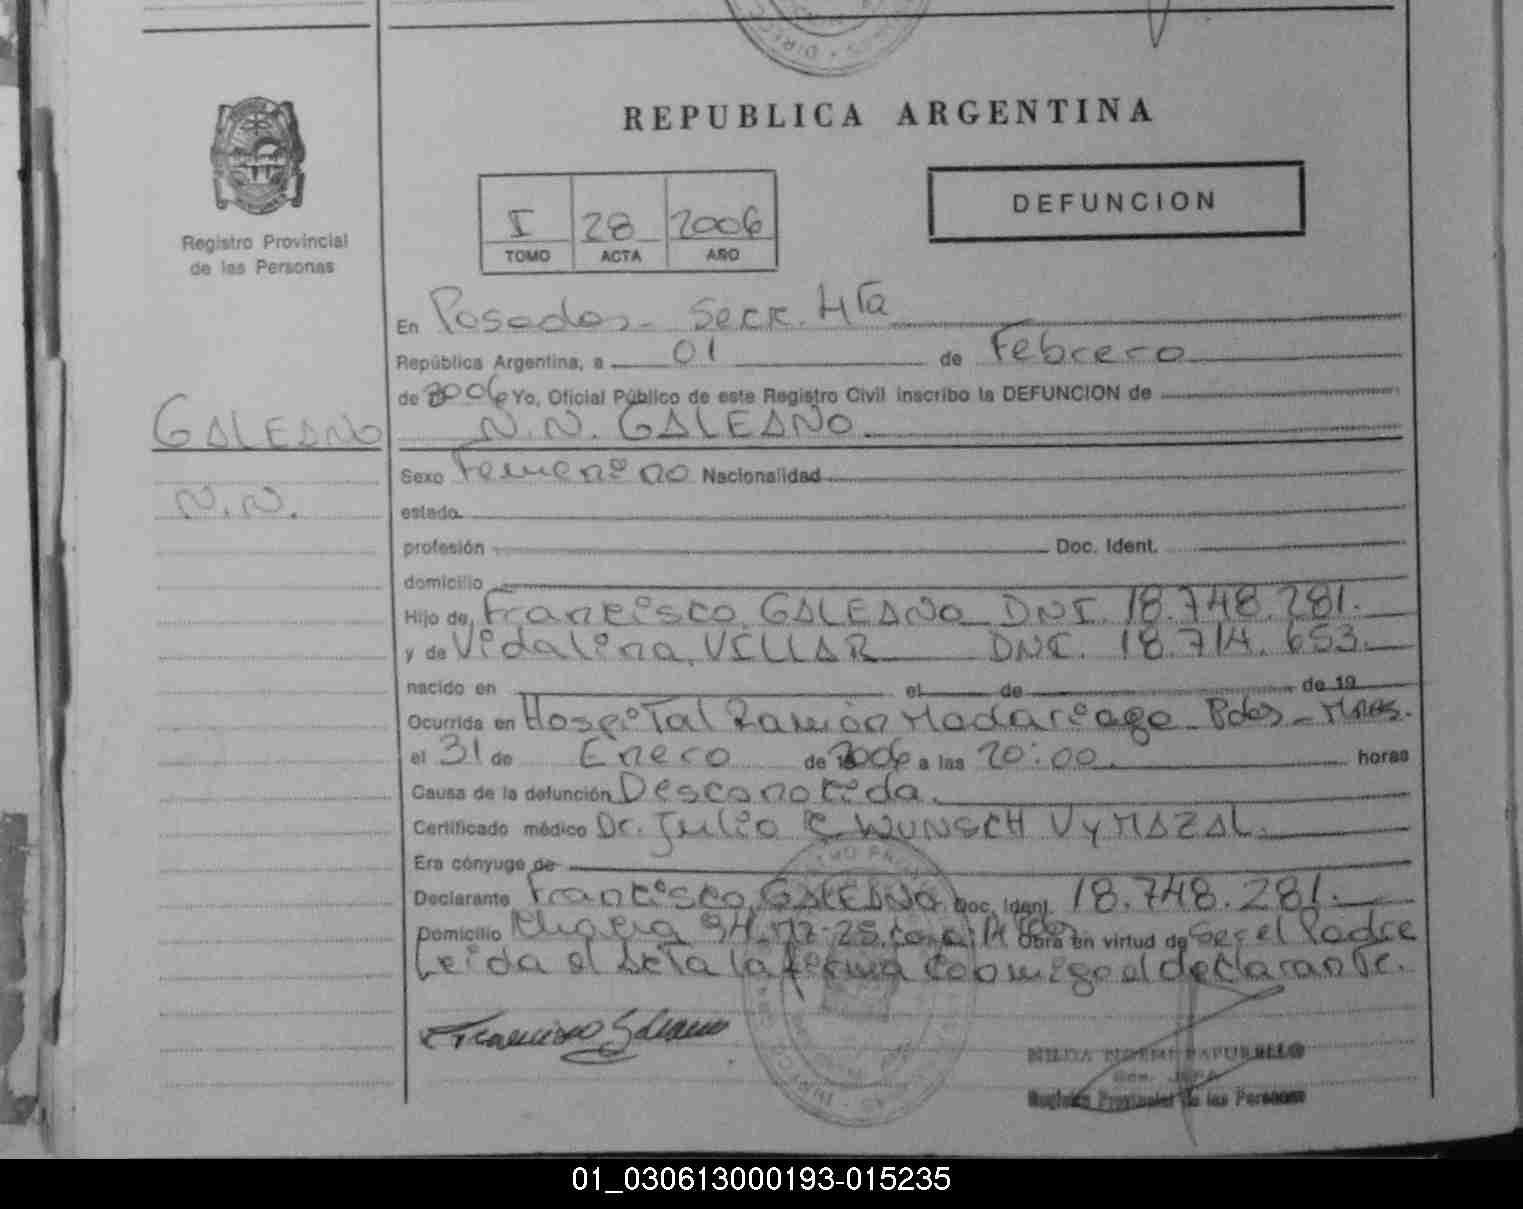 REPUBLICA ARGENTINA
DEFUNCION
I 28 2006
TOMO ACTA AÑO
Registro Provincial
de las Personas
En Posadas - Secr. Hta
República Argentina, a 01 de Febrero
de 2006 Yo, Oficial Público de este Registro Civil inscribo la DEFUNCION de
GALEANO
N.N. GALEANO
N.N.
Sexo Femenino Nacionalidad
estado
profesión Doc. Ident.
domicilio
Hijo de Francisco GALEANO DNI. 18.748.281.
y de Vidalina VILLAR DNI. 18.714.653.
nacido en el de de 19
Ocurrida en Hospital Ramón Madariaga - Pdas - Mnes.
el 31 de Enero de 2006 a las 20:00 horas
Causa de la defunción Desconocida.
Certificado médico Dr. Julio C WUNSCH VYMAZAL.
Era cónyuge de
Declarante Francisco GALEANO Doc. Ident. 18.748.281.
Domicilio Obra en virtud de Ser el Padre
Leida el Acta la firma conmigo el declarante.
Francisco Galeano
Registro Provincial de las Personas
01_030613000193-015235